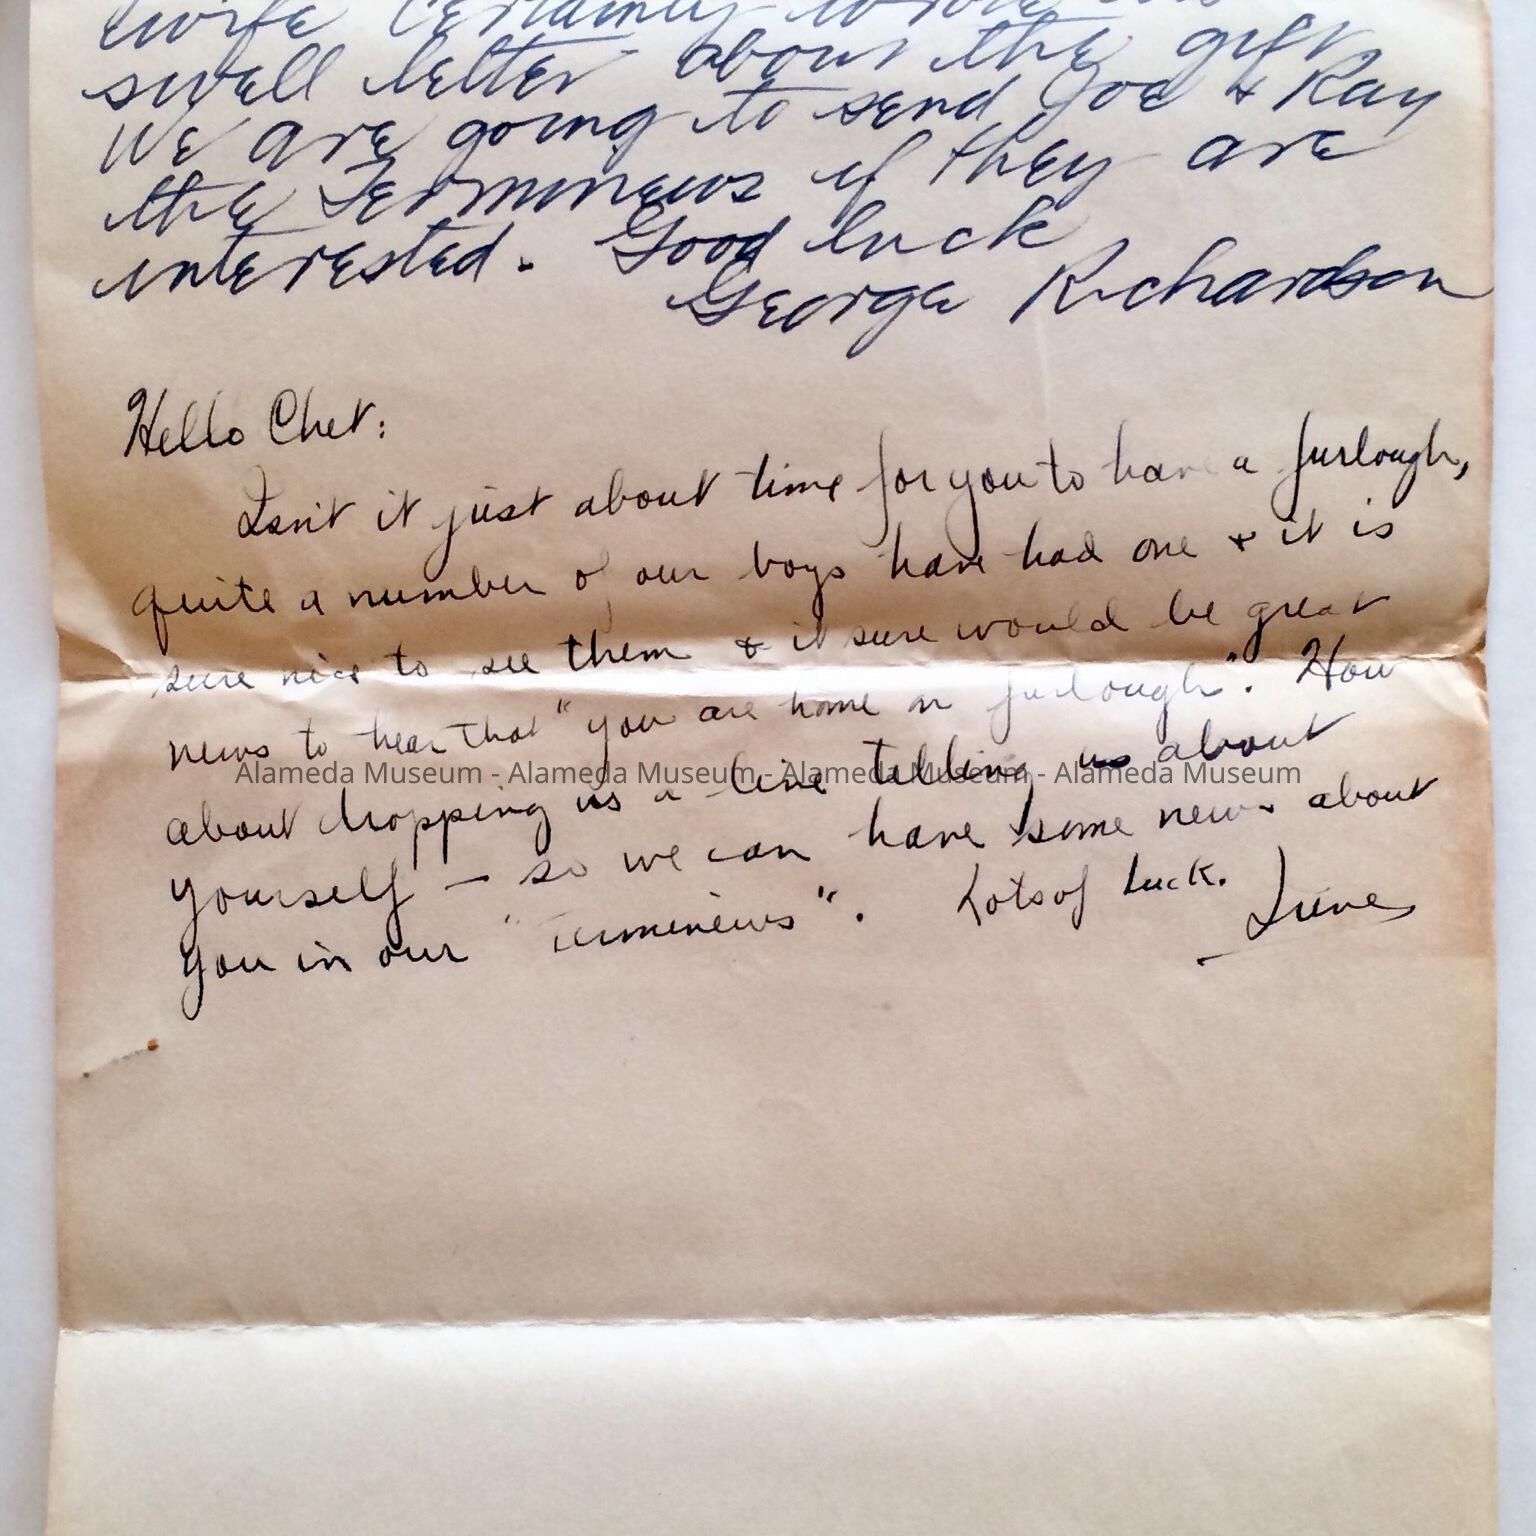 wife certainly wrote us
swell letter about the gift
We are going to send Joe & Ray
the Terminews if they are
interested. Good luck
George Richardson
Hello Chet:
Isn't it just about time for you to have a furlough,
quite a number of our boys have had one & it is
sure nice to see them & it sure would be great
news to hear that "you are home on furlough". How
Alameda Museum - Alameda Museum - Alameda Museum - Alameda Museum
about dropping us a line telling us about
yourself — so we can have some news about
you in our "Terminews". Lots of Luck.
- June